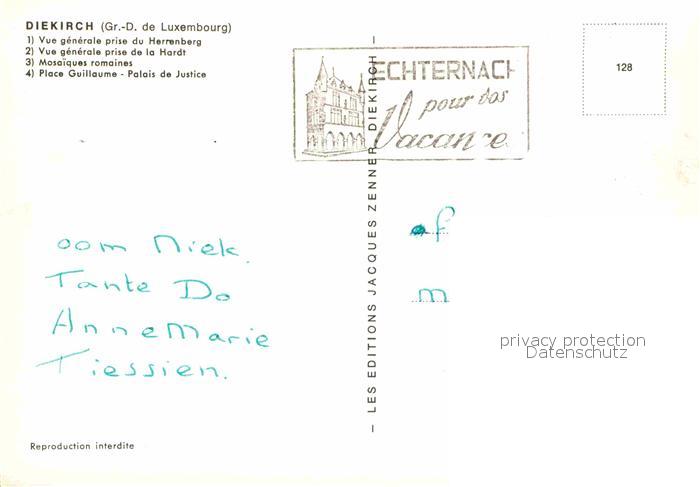 DIEKIRCH (Gr.-D. de Luxembourg)
1) Vue générale prise du Herrenberg
2) Vue générale prise de la Hardt
3) Mosaïques romaines
4) Place Guillaume - Palais de Justice
ECHTERNACH
pour vos
Vacances
128
— LES EDITIONS JACQUES ZENNER, DIEKIRCH —
oom Niek.
Tante Do
AnneMarie
Tiessien.
f
m
privacy protection
Datenschutz
Reproduction interdite